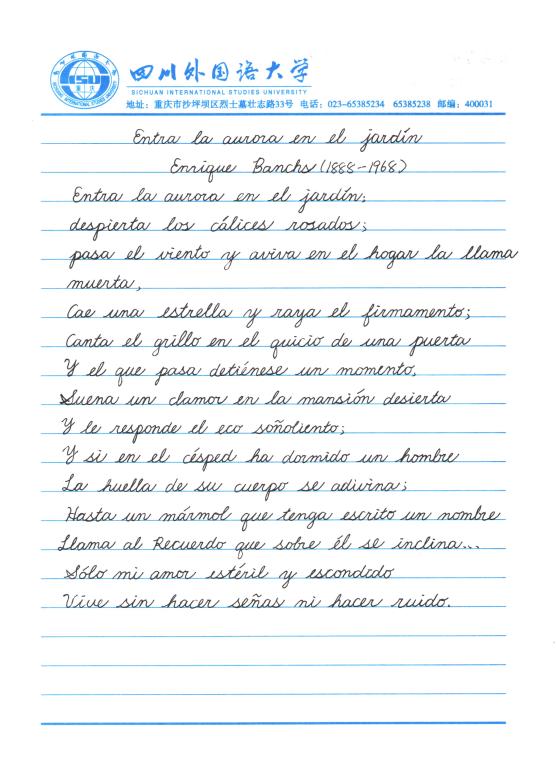 四川外国语大学
SICHUAN INTERNATIONAL STUDIES UNIVERSITY
地址：重庆市沙坪坝区烈士墓壮志路33号 电话：023-65385234 65385238 邮编：400031
Entra la aurora en el jardín
Enrique Banchs (1888-1968)
Entra la aurora en el jardín;
despierta los cálices rosados;
pasa el viento y aviva en el hogar la llama
muerta,
Cae una estrella y raya el firmamento;
Canta el grillo en el quicio de una puerta
Y el que pasa detiénese un momento,
Suena un clamor en la mansión desierta
Y le responde el eco soñoliento;
Y si en el césped ha dormido un hombre
La huella de su cuerpo se adivina;
Hasta un mármol que tenga escrito un nombre
Llama al Recuerdo que sobre él se inclina...
Sólo mi amor estéril y escondido
Vive sin hacer señas ni hacer ruido.